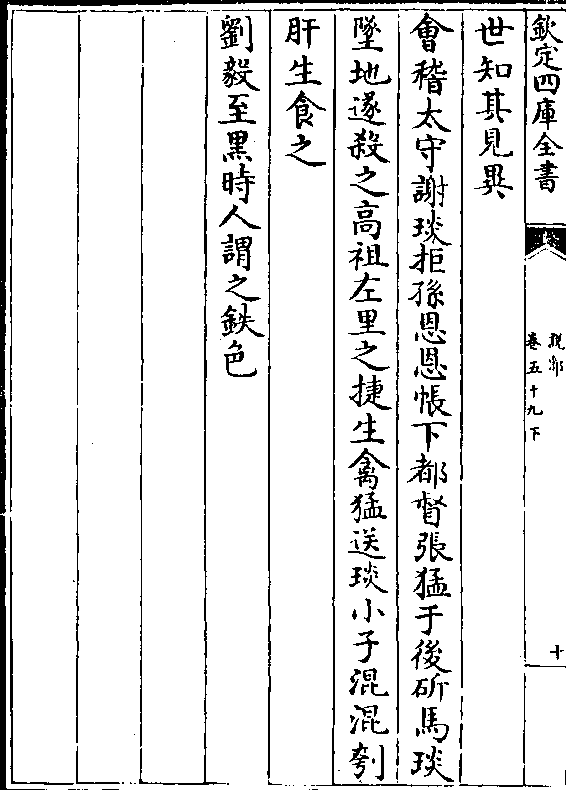 欽定四庫全書
說郛
卷五十九下
十
世知其見異
會稽太守謝琰拒孫恩恩帳下都督張猛于後斫馬琰
墜地遂殺之高祖左里之捷生禽猛送琰小子混混刳
肝生食之
劉毅至黑時人謂之鉄色